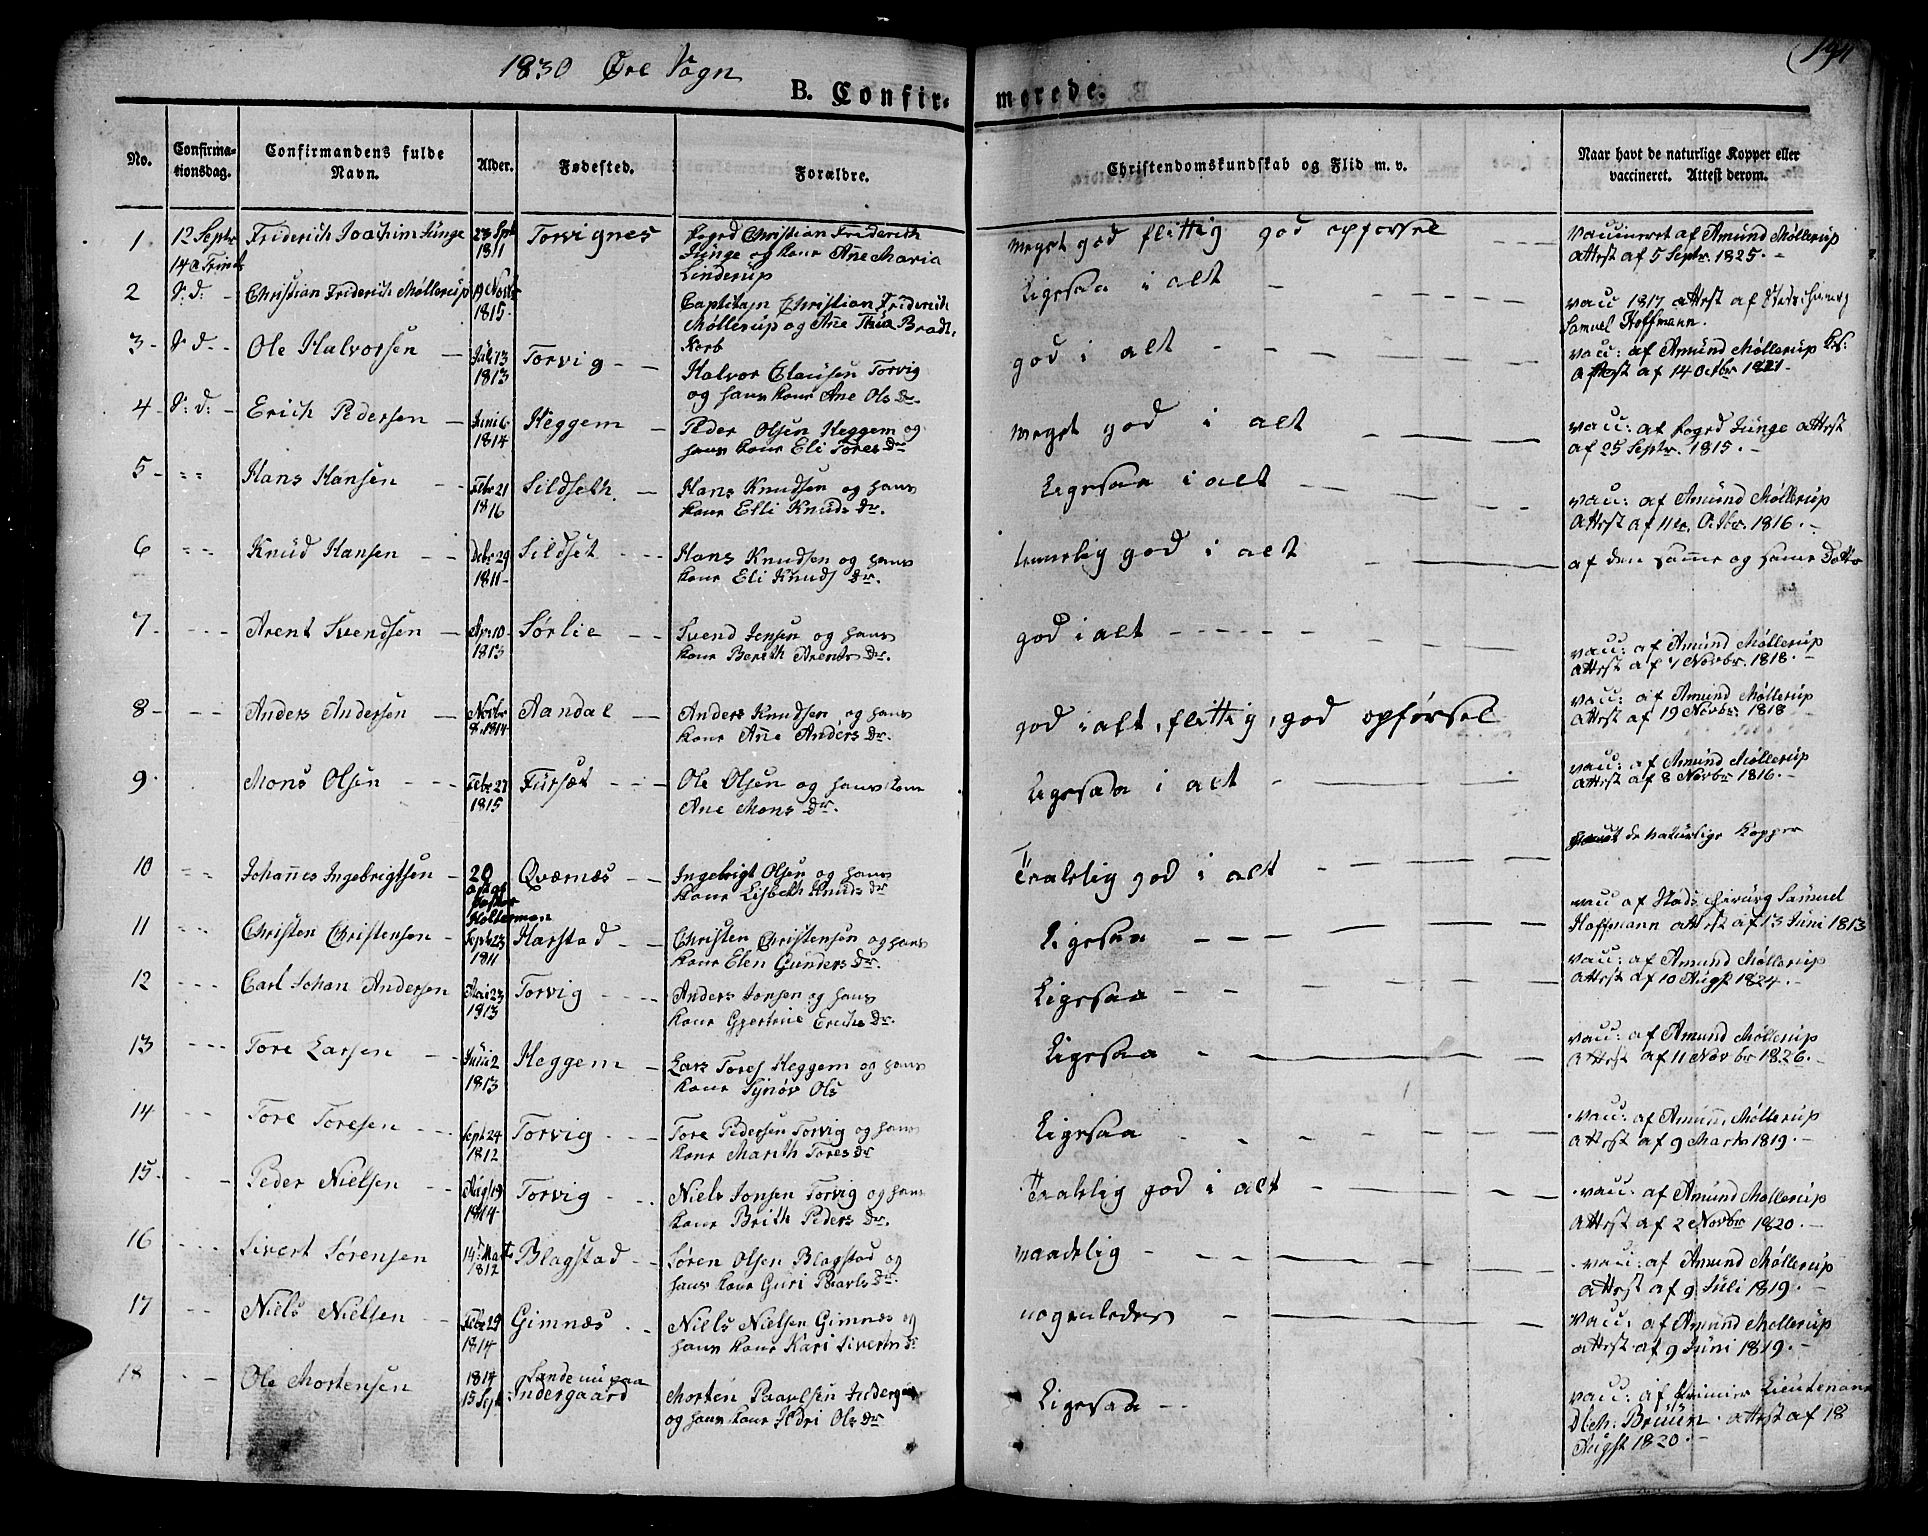 1830 Øre Sogn
194
B. Confirmerede.
No.
Confirmationsdag.
Confirmandens fulde Navn.
Alder.
Fødested.
Forældre.
Christendomskundskab og Flid m. v.
Naar havt de naturlige Kopper eller vaccineret. Attest derom.
1 12 Septr Friderich Joachim Junge 23 Spt Torvignes Fogd Christian Friderich meget god flittig god opførsel Vaccineret af Amund Møllerup
14 a Trinit 1811 Junge og kone Ane Maria attest af 5 Septr. 1825.
Linderup
2 S: d: Christian Friderich Møllerup 19 Novbr Captitajn Christian Friderich Ligesaa i alt vacc 1817 attest af
1815 Møllerup og Ane Samuel Hoffmann.
3 S: d: Ole Halvorsen 13 Torvig Halvor Clausen Torvig god i alt vacc: af Amund Møllerup
1813 og hans kone Ane Ols Dr. attest af 14 Octbr 1821
4 S: d: Erich Pedersen Juni 6 Heggem Peder Olsen Heggem og meget god i alt vacc: af Fogd Junge attest
1814 hans kone Eli Tores Dr af 25 Septr. 1815.
5 Hans Hansen Febr 21 Sildseth Hans Knudsen og hans Ligesaa i alt vacc: af Amund Møllerup
1816 kone Elli Knuds Dr. attest af 11te Octbr. 1816.
6 Knud Hansen 29 Sildset Hans Knudsen og hans temmelig god i alt af den samme og samme Datto
1811 kone Eli Knuds Dr.
7 Arent Svendsen Apr 10 Sørlie Svend Jensen og hans god i alt vacc: af Amund Møllerup
1813 kone Berith Arents Dr. attest af 7 Novbr. 1818.
8 Anders Andersen Novbr Aandal Anders Knudsen og hans god i alt, flittig, god opførsel vacc: af Amund Møllerup
1814 kone Ane Anders Dr. attest af 19 Novbr. 1818
9 Mons Olsen Febr 27 Fursæt Ole Olsen og hans kone Ligesaa i alt vacc: af Amund Møllerup
1815 Ane Mons Dr. attest af 8 Novbr 1816.
havt de naturlige Kopper
10 Johannes Ingebrigtsen 20 Qværnæs Ingebrigt Olsen og hans Taalelig god i alt
kone Lisbeth Knuds Dr
11 Christen Christensen Septr 23 Harstad Christen Christensen og hans Ligesaa vacc af Stads chirurg Samuel
1811 kone Elen Gunders Dr. Hoffmann attest af 13 Juni 1813
12 Carl Johan Andersen Mai 23 Torvig Anders Jonsen og hans Ligesaa vacc: af Amund Møllerup
1813 kone Gjertrue Erichs Dr. attest af 10 Augst 1824.
13 Tore Larsen Juni 2 Heggem Lars Tores Heggem og hans Ligesaa vacc: af Amund Møllerup
1813 kone Synøv Ols attest af 11 Novbr 1826.
14 Tore Toresen Sept 24 Torvig Tore Pedersen Torvig og hans Ligesaa vacc: af Amund Møllerup
1812 kone Marith Tores Dr attest af 9 Marts 1819.
15 Peder Nielsen Aug 19 Torvig Niels Jonsen Torvig og hans Taalelig god i alt vacc: af Amund Møllerup
1814 kone Brith Peders Dr. attest af 2 Novbr 1820.
16 Sivert Sørensen 14 Marts Blagstad Søren Olsen Blagstad og maadelig vacc: af Amund Møllerup
1812 hans kone Guri Paals Dr. attest af 9 Juli 1819.
17 Niels Nielsen Febr 29 Gimnæs Niels Nielsen Gimnæs og nogenledes vacc: af Amund Møllerup
1814 hans kone Kari Siverts Dr attest af 9 Juni 1819.
18 Ole Mortensen 1814 Sande nu paa Morten Paavlsen Indergaard Ligesaa vacc: af Premier Lieutenant
15 Sept Indergaard og hans kone Ildri Ols Dr Bruun attest af 18
Augst 1820.